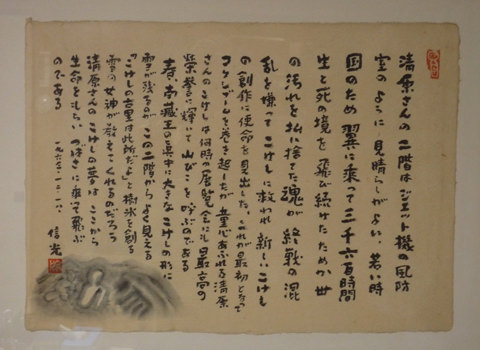 清原さんの二階はジェット機の風防
室のように見晴らしがよい、若い時
国のため翼に乗って三千六百時間
生と死の境を飛び続けたためか世
の汚れを払い捨てた魂が終戦の混
乱を嫌ってこけしに救われ新しいこけし
の創作に使命を見出した、これが最初となって
コケシブームを巻き起したが童心あふれる清原
さんのこけしは何時の展覧会にも最高の
栄誉に輝いて山びこを呼ぶのである
春、南蔵王の連中に大きなこけしの形に
雪が残るがこの二階からよく見える
「こけしの古里は此所だよ」と樹氷を創る
雪の女神が教えてくれるのだろう
清原さんのこけしの夢はここから
生命をもらいつばさに乗って飛ぶ
のである
信光